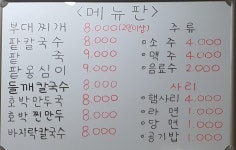 <메뉴판>
부대찌개 8.000(2인이상)
팥칼국수 8.000
팥국 9.000
팥옹심이 9.000
들깨칼국수 8.000
호박만두국 8.000
호박찐만두 8.000
바지락칼국수 8.000
주류
소주 4.000
맥주 4.000
음료수 2.000
사리
햄사리 4.000
라면 1.000
당면 1.000
공기밥 1.000